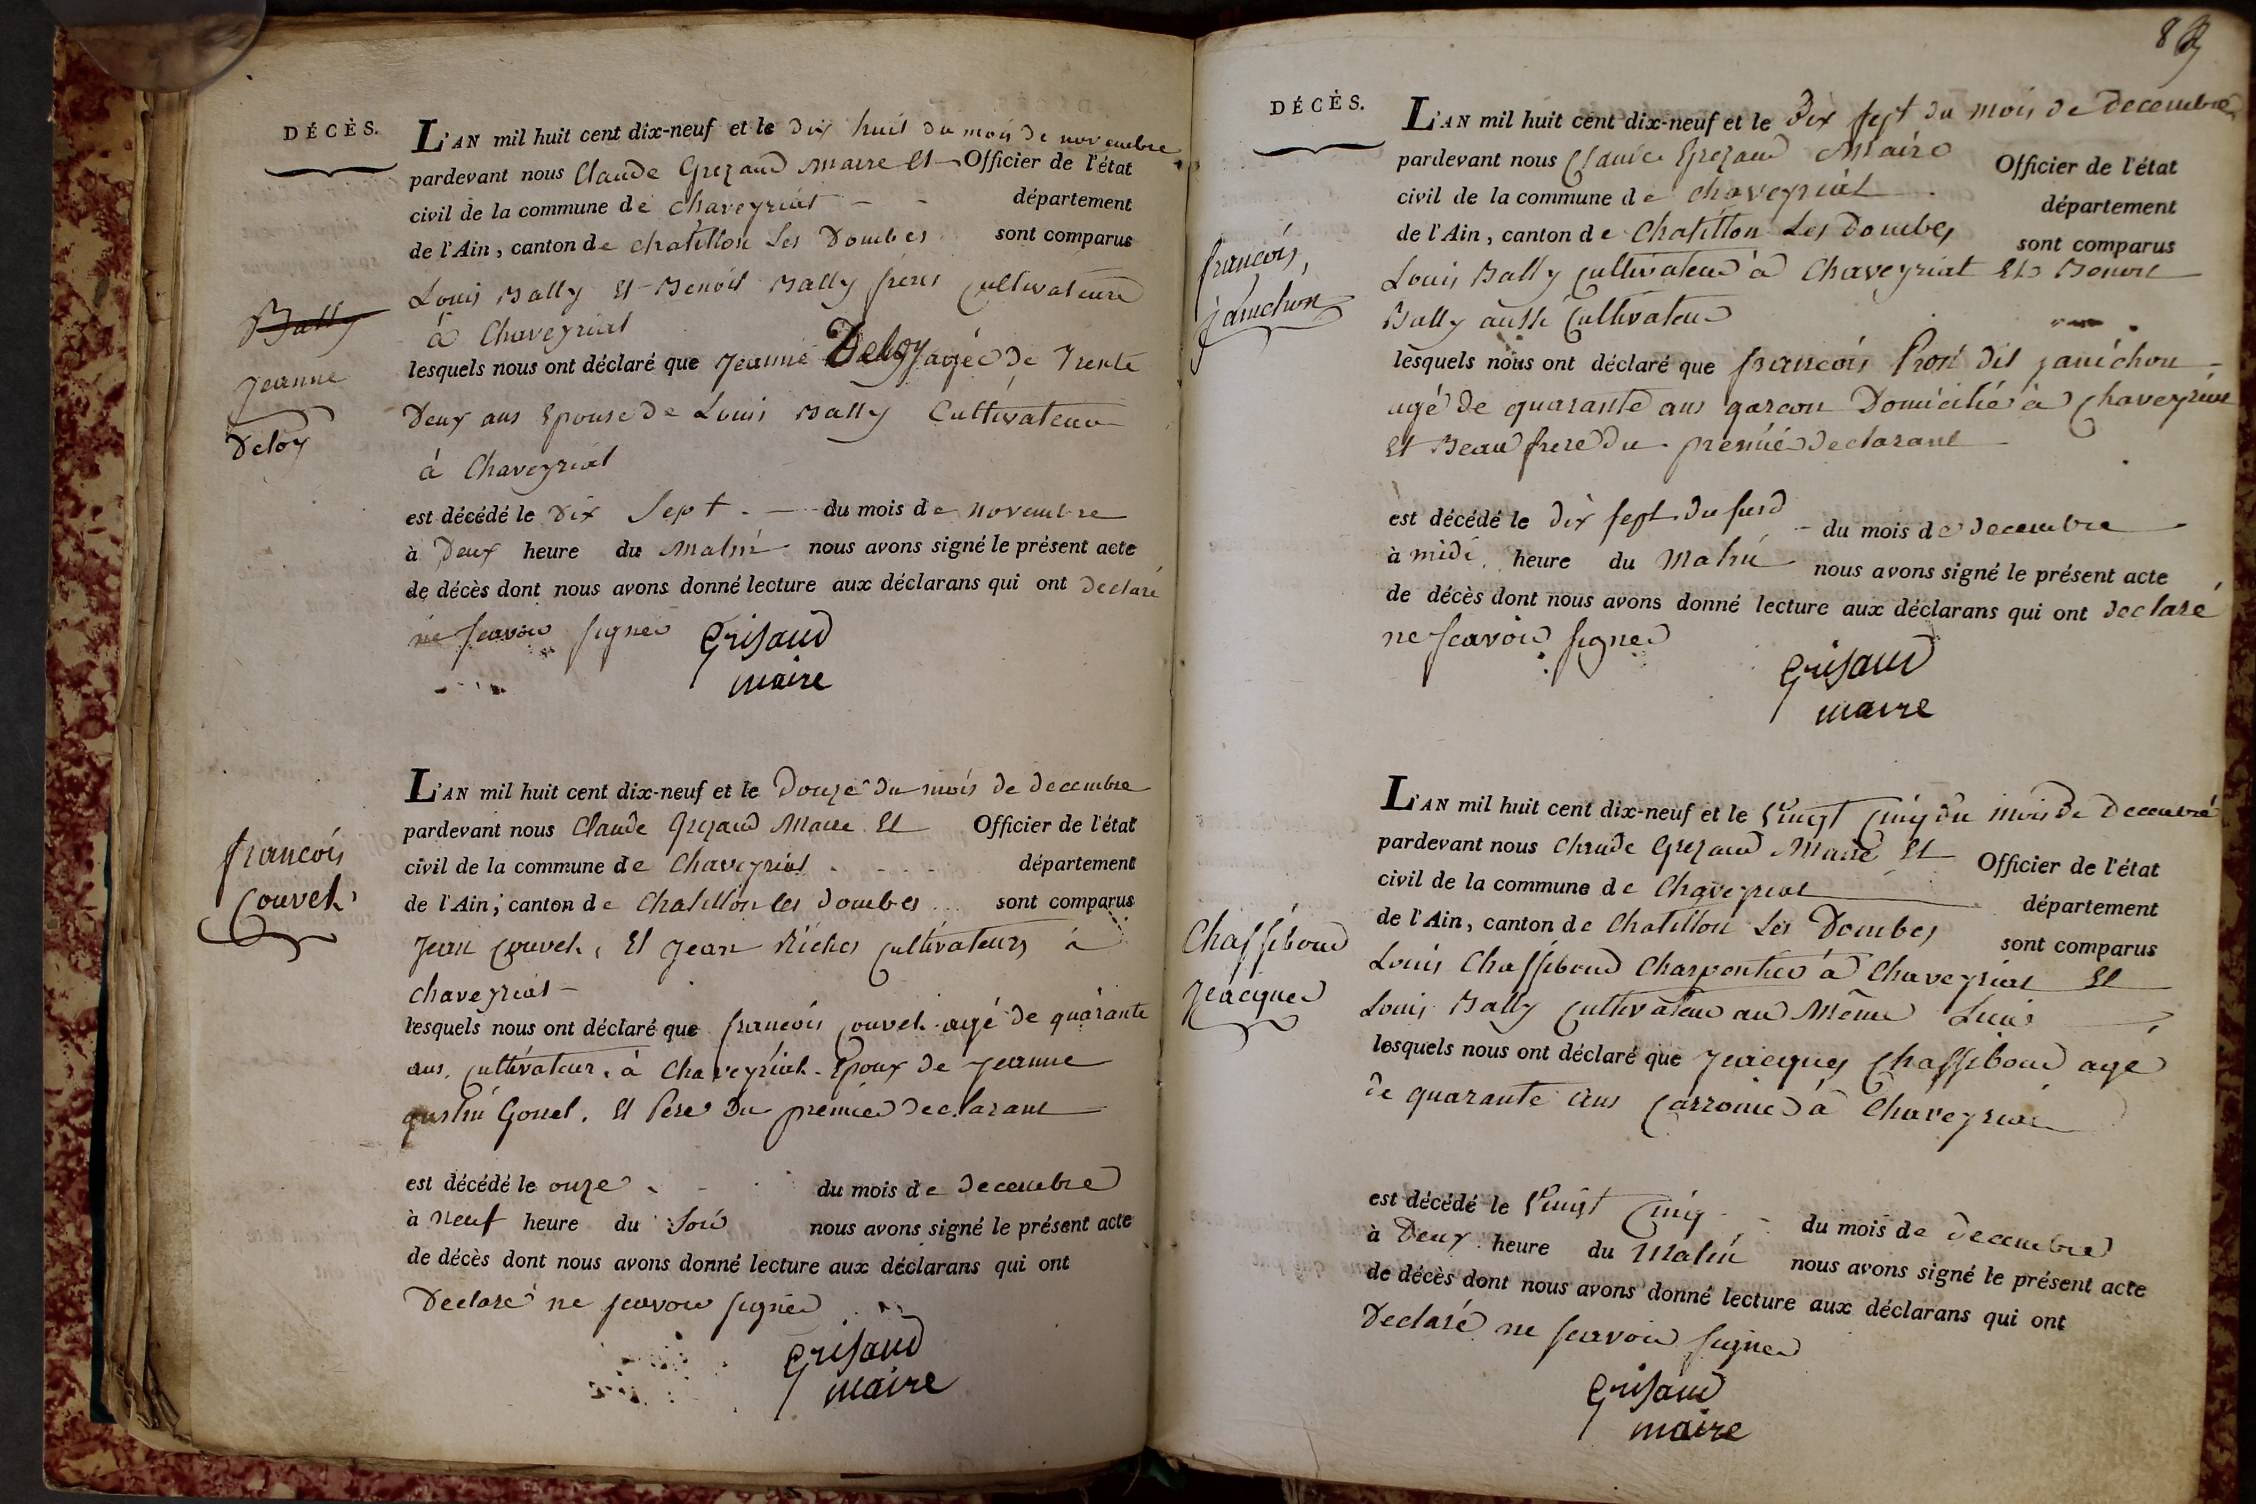 DÉCÈS.
L'AN mil huit cent dix-neuf et le dix huit du mois de novembre
pardevant nous Claude Grezaud maire Et Officier de l'état
civil de la commune de chaveyriat département
de l'Ain, canton de chatillon Les Dombes sont comparus
Louis Bally Et Benoit Bally freres Cultivateurs
à Chaveyriat
lesquels nous ont déclaré que Jeanne Deloy agée de Trente
Deux ans Epouse de Louis Bally Cultivateur
à Chaveyriat
est décédé le Dix Sept du mois de novembre
à Deux heure du Matin nous avons signé le présent acte
de décès dont nous avons donné lecture aux déclarans qui ont declaré
ne scavoir signer Grisaud
maire
Bally
Jeanne
Deloy
L'AN mil huit cent dix-neuf et le Douze du mois de decembre
pardevant nous Claude Grezaud Maire Et Officier de l'état
civil de la commune de Chaveyriat département
de l'Ain, canton de Chatillon les Dombes sont comparus
Jean Couvet, Et Jean Riches cultivateurs à
chaveyriat
lesquels nous ont déclaré que francois Couvet agé de quarante
ans, Cultivateur à Chaveyriat Epoux de Jeanne
Gonel. Et Pere Du premier Declarant
est décédé le onze du mois de Decembre
à Neuf heure du Soir nous avons signé le présent acte
de décès dont nous avons donné lecture aux déclarans qui ont
Declaré ne scavoir signer
Grisaud
maire
francois
Couvet
DÉCÈS.
L'AN mil huit cent dix-neuf et le Dix sept du mois de Decembre
pardevant nous Claude Grezaud Maire Officier de l'état
civil de la commune de chaveyriat département
de l'Ain, canton de Chatillon Les Dombes sont comparus
Louis Bally Cultivateur à Chaveyriat Et Benoit
Bally aussi Cultivateur
lesquels nous ont déclaré que francois Dit janichon
agé de quarante ans garcon Domicilié à Chaveyriat
Et Beau frere du premier Declarant
est décédé le dix sept du du mois de decembre
à midi heure du Matin nous avons signé le présent acte
de décès dont nous avons donné lecture aux déclarans qui ont declaré
ne scavoir signer
Grisaud
maire
francois,
janichon
L'AN mil huit cent dix-neuf et le Vingt Cinq du mois De Decembre
pardevant nous Claude Grezaud Maire Et Officier de l'état
civil de la commune de Chaveyriat département
de l'Ain, canton de Chatillon Les Dombes sont comparus
Louis Chassiboud Charpentier à Chaveyriat Et
Louis Bally Cultivateur au Même Lieu
lesquels nous ont déclaré que Jeacques Chassiboud agé
de quarante ans à Chaveyriat
est décédé le Vingt Cinq du mois de decembre
à Deux heure du Matin nous avons signé le présent acte
de décès dont nous avons donné lecture aux déclarans qui ont
Declaré ne scavoir signer
Grisaud
maire
Chassiboud
Jeacques